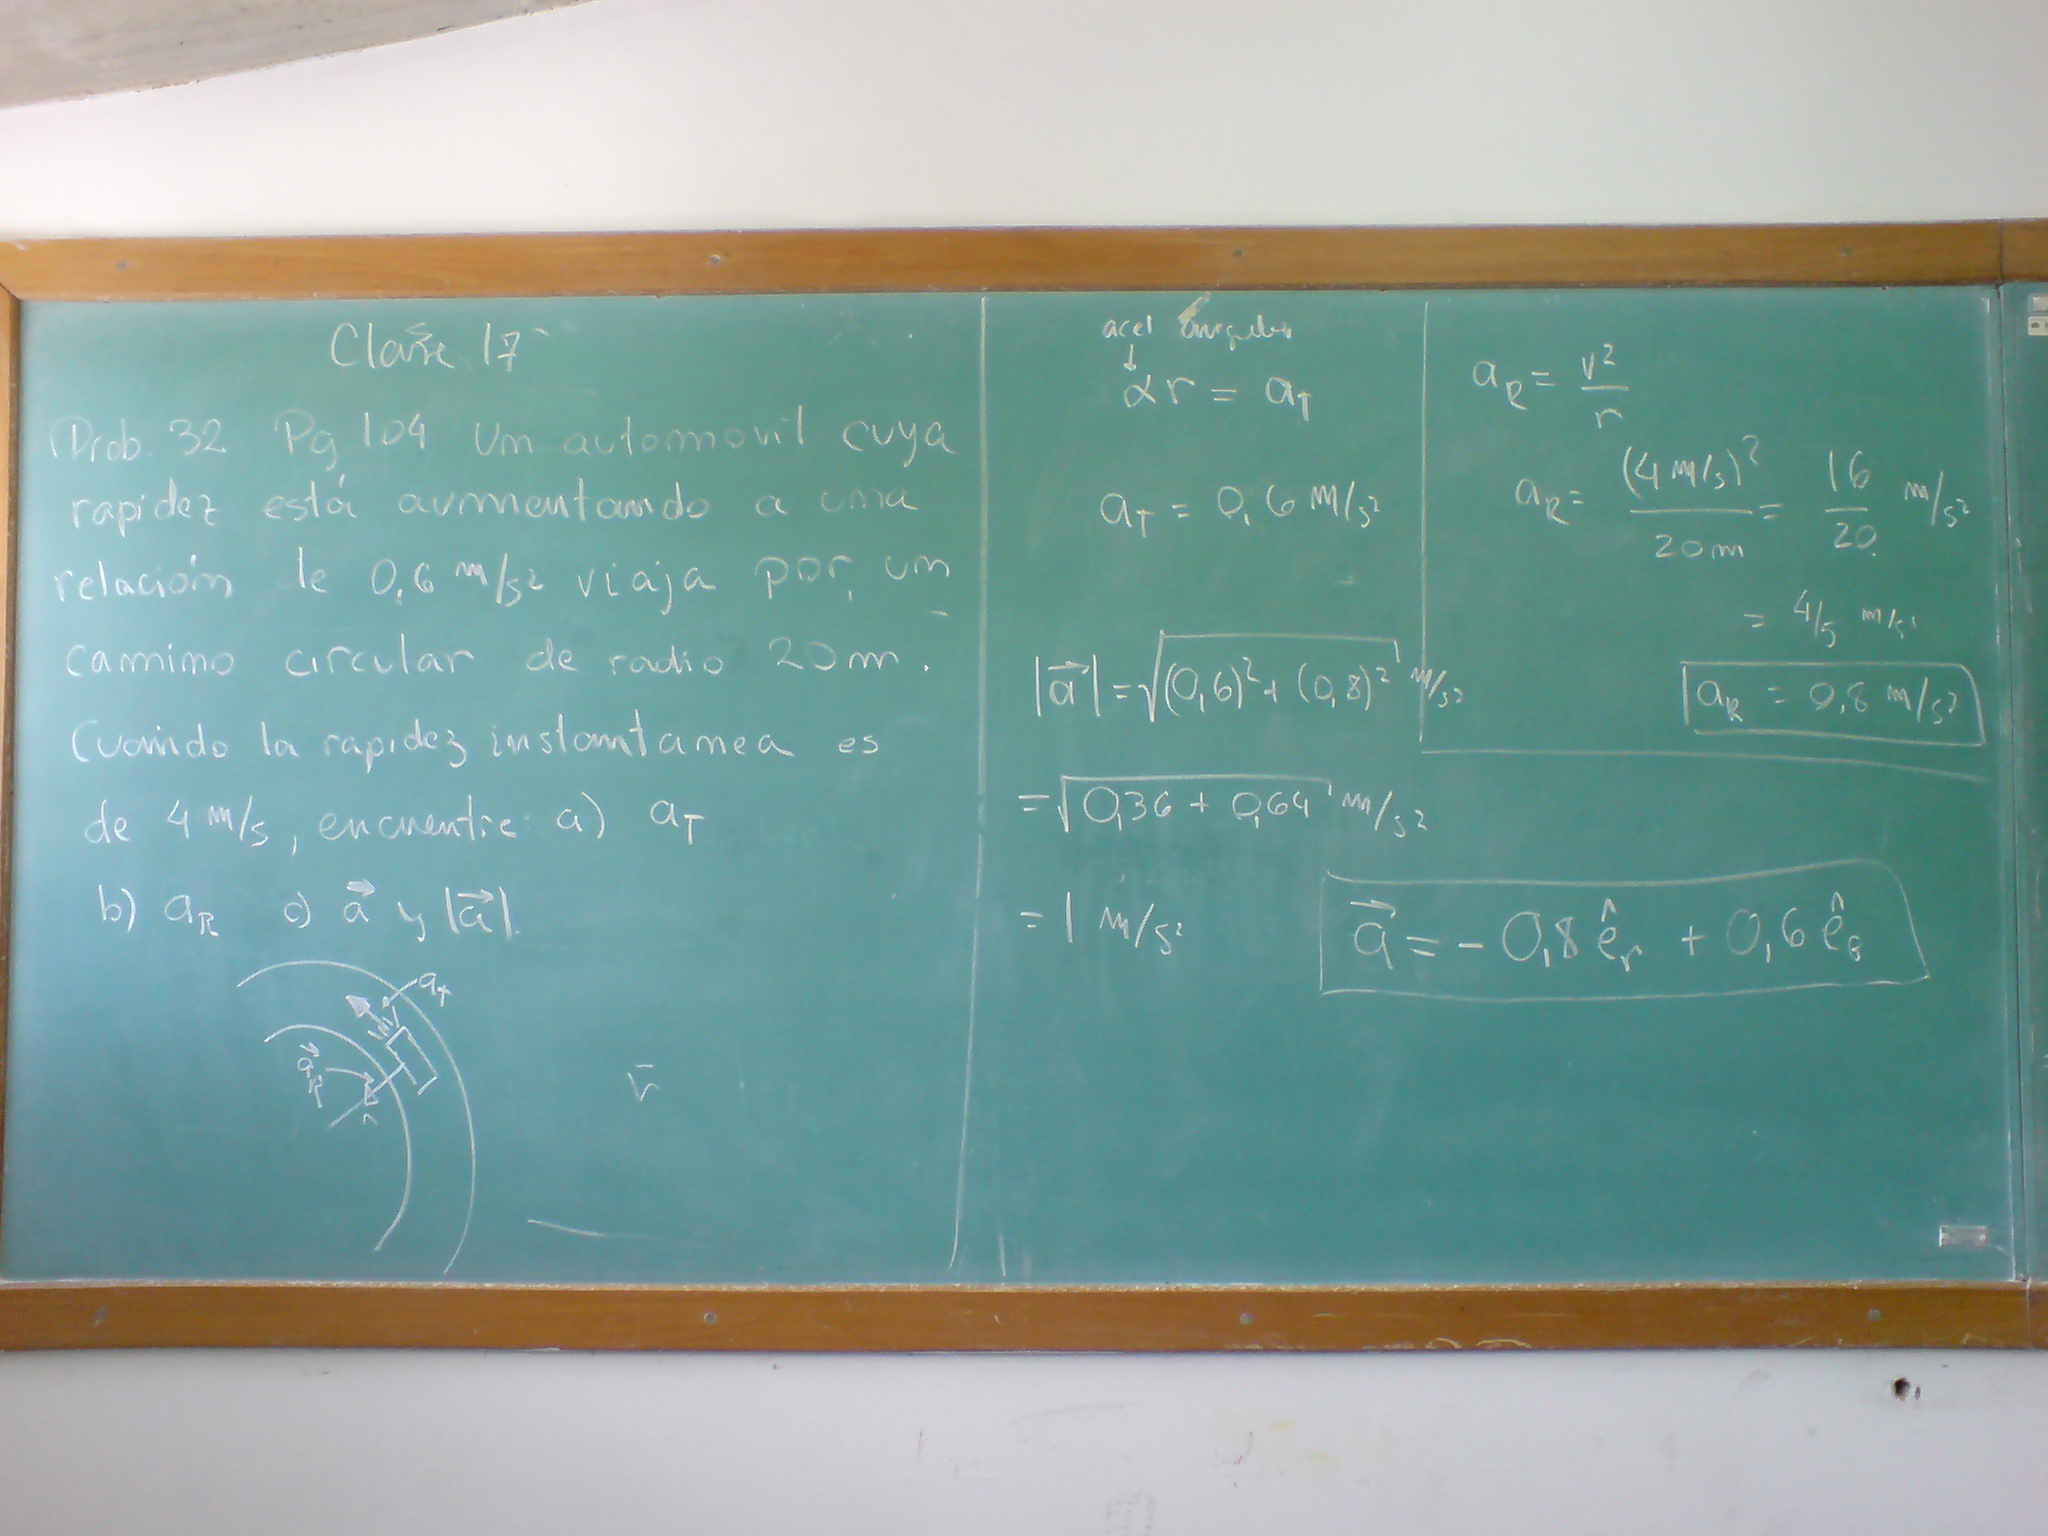 Clase 17
Prob. 32 Pg 104 Un automovil cuya
rapidez está aumentando a una
relación de 0,6 m/s² viaja por un
camino circular de radio 20 m.
Cuando la rapidez instantanea es
de 4 m/s, encuentre: a) a_T
b) a_R c) \vec{a} y |\vec{a}|.
a_T
\vec{a}_R
acel angular
↓
αr = a_T
a_T = 0,6 m/s²
|\vec{a}| = √((0,6)² + (0,8)²) m/s²
= √(0,36 + 0,64) m/s²
= 1 m/s²
a_R = v²/r
a_R = (4 m/s)²/20 m = 16/20 m/s²
= 4/5 m/s²
a_R = 0,8 m/s²
\vec{a} = -0,8 ê_r + 0,6 ê_θ